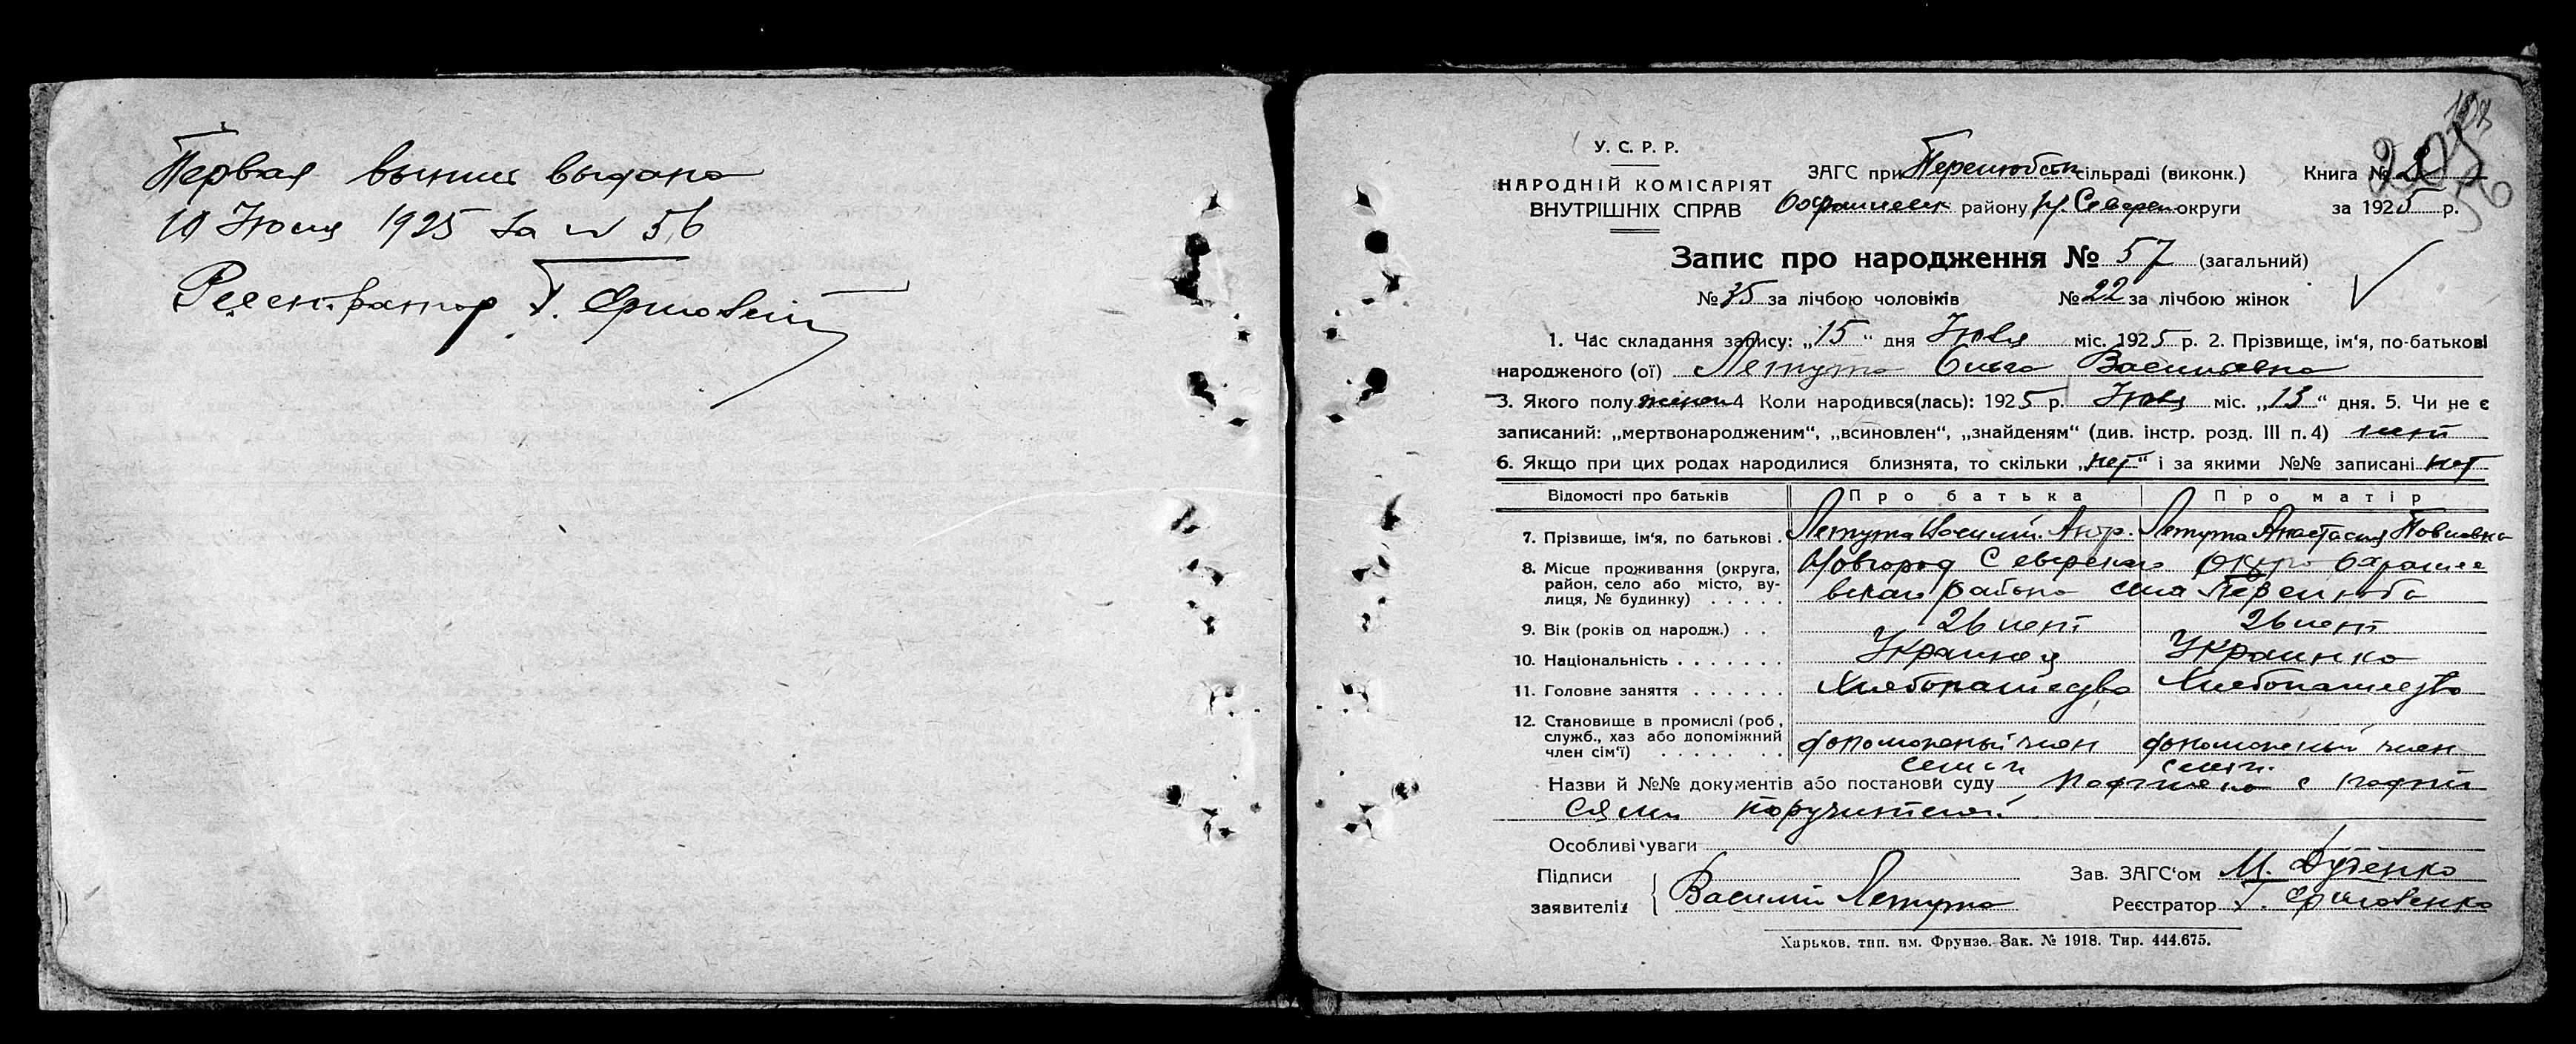 Первая выпись выдана
10 Июня 1925 за № 56
Регистратор Т.
У. С. Р. Р.
НАРОДНІЙ КОМІСАРІЯТ
ВНУТРІШНІХ СПРАВ
ЗАГС при Перелюбск сільраді (виконк.)
району Н. Северск округи
Книга №
за 1925 р.
Запис про народження № 57 (загальний)
№ 35 за лічбою чоловіків № 22 за лічбою жінок
1. Час складання запису: „15“ дня міс. 1925 р. 2. Прізвище, ім‘я, по-батькові
народженого (ої) Летута Ольга Васильевна
3. Якого полу женск 4 Коли народився(лась): 1925 р. міс. „13“ дня. 5. Чи не є
записаний: „мертвонародженим“, „всиновлен“, „знайденям“ (див. інстр. розд. III п. 4) нет
6. Якщо при цих родах народилися близнята, то скільки „нет“ і за якими №№ записані нет
Відомості про батьків Про батька Про матір
7. Прізвище, ім‘я, по батькові . Летута Василий Андр. Летута Анастасия Павловна
8. Місце проживання (округа, район, село або місто, вулиця, № будинку) . . . . . Новгород Северская округа
района села Перелюба
9. Вік (років од народж.) . . 26 лет 26 лет
10. Національність . . . . . . . Украинец Украинка
11. Головне заняття . . . . . . Хлебопашество Хлебопашество
12. Становище в промислі (роб,
служб., хаз або допоміжний
член сім‘ї) . . . . . . . член семьи член семьи
Назви й №№ документів або постанови суду с
поручителей
Особливі уваги
Підписи
заявителів Василий Летута
Зав. ЗАГС‘ом М. Дученко
Реєстратор Т.
Харьков, тип. им. Фрунзе. Зак. № 1918. Тир. 444.675.